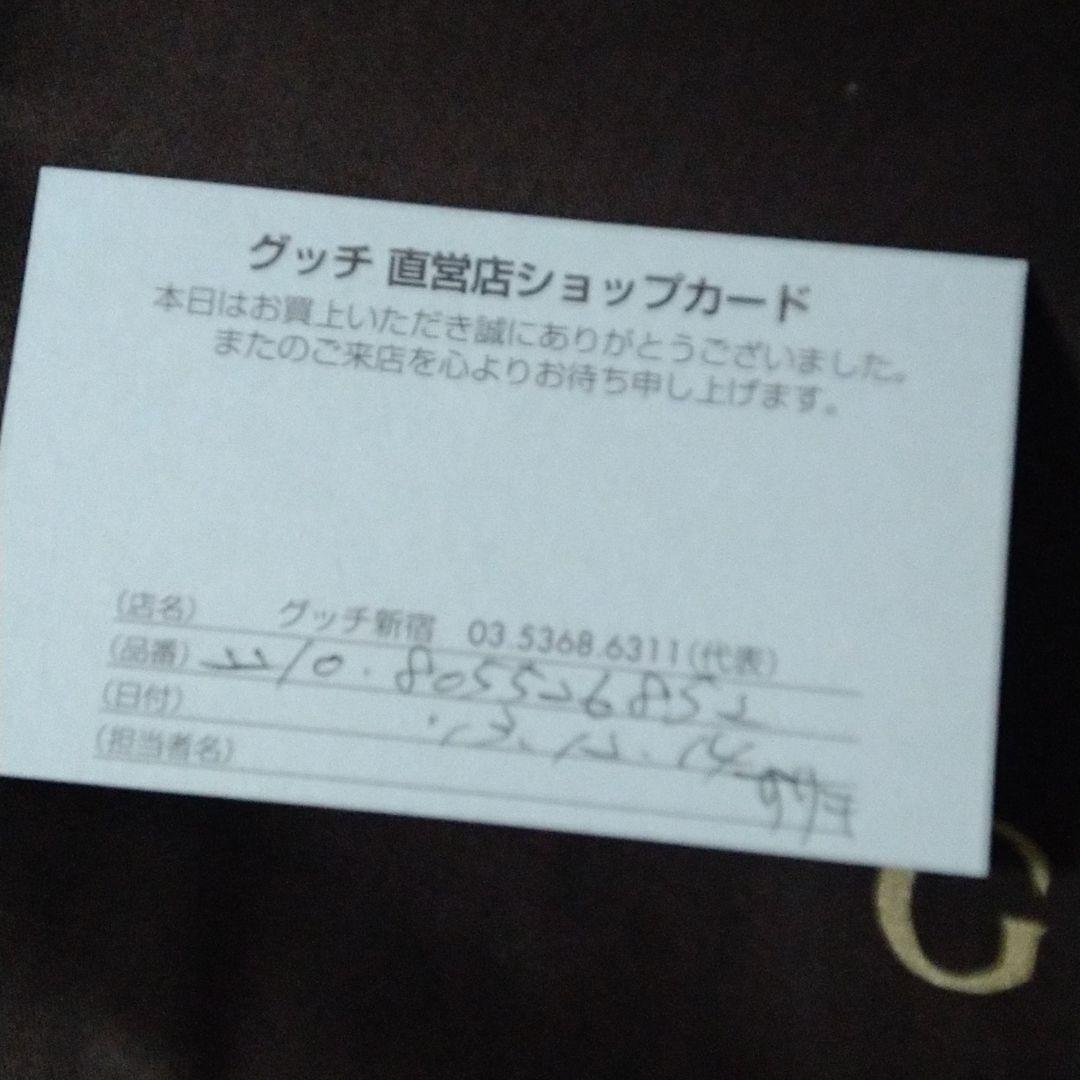 グッチ 直営店ショップカード
本日はお買上いただき誠にありがとうございました。
またのご来店を心よりお待ち申し上げます。
(店名) グッチ新宿 03.5368.6311(代表)
(品番) 2210.8055526852
(日付) '13.12.14
(担当者名)
G